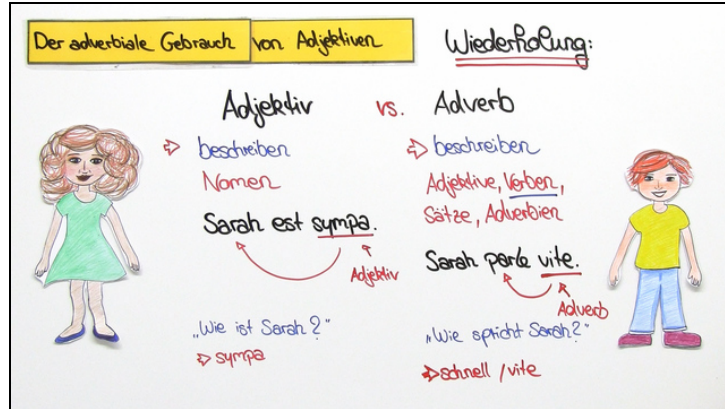 Der adverbiale Gebrauch von Adjektiven
Wiederholung:
Adjektiv vs. Adverb
⇨ beschreiben
Nomen
Sarah est sympa.
Adjektiv
„Wie ist Sarah?"
⇨ sympa
⇨ beschreiben
Adjektive, Verben,
Sätze, Adverbien
Sarah parle vite.
Adverb
„Wie spricht Sarah?"
⇨ schnell / vite